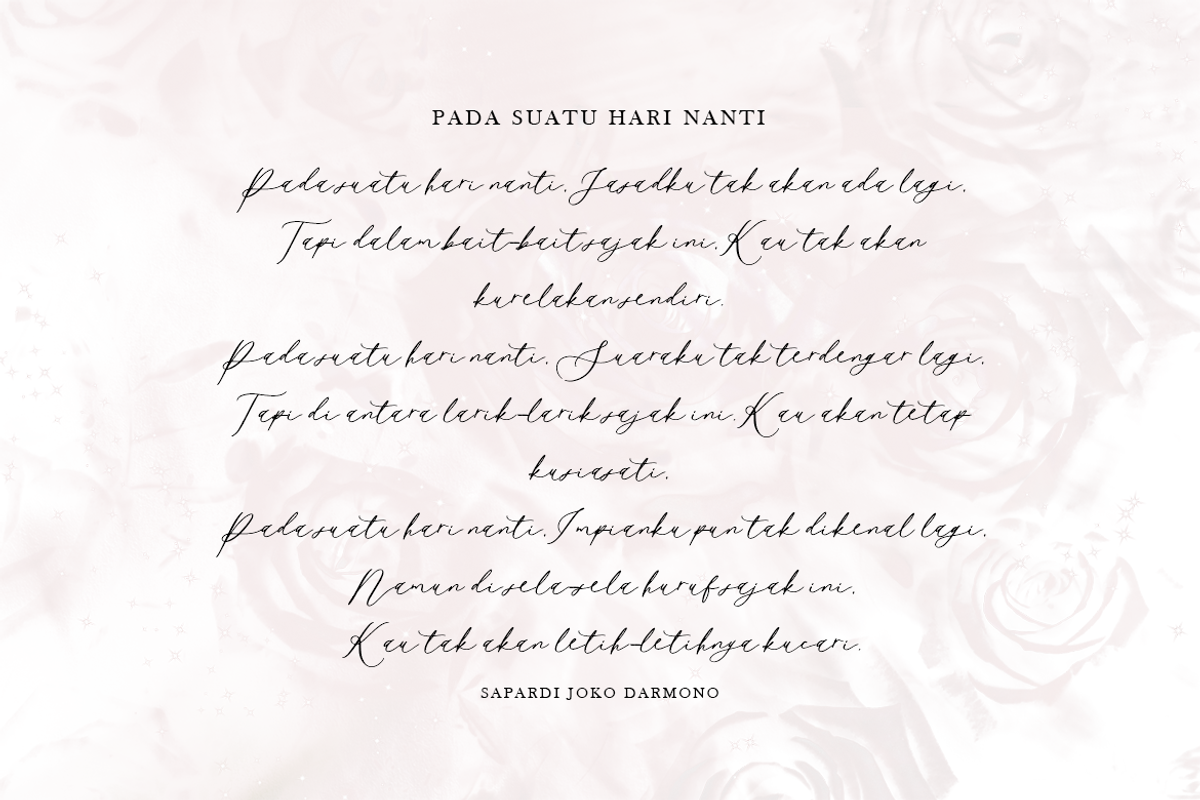 PADA SUATU HARI NANTI
Pada suatu hari nanti. Jasadku tak akan ada lagi.
Tapi dalam bait-bait sajak ini. Kau tak akan
kurelakan sendiri.
Pada suatu hari nanti. Suaraku tak terdengar lagi.
Tapi di antara larik-larik sajak ini. Kau akan tetap
kusiasati.
Pada suatu hari nanti. Impianku pun tak dikenal lagi.
Namun di sela-sela huruf sajak ini.
Kau tak akan letih-letihnya kucari.
SAPARDI JOKO DARMONO